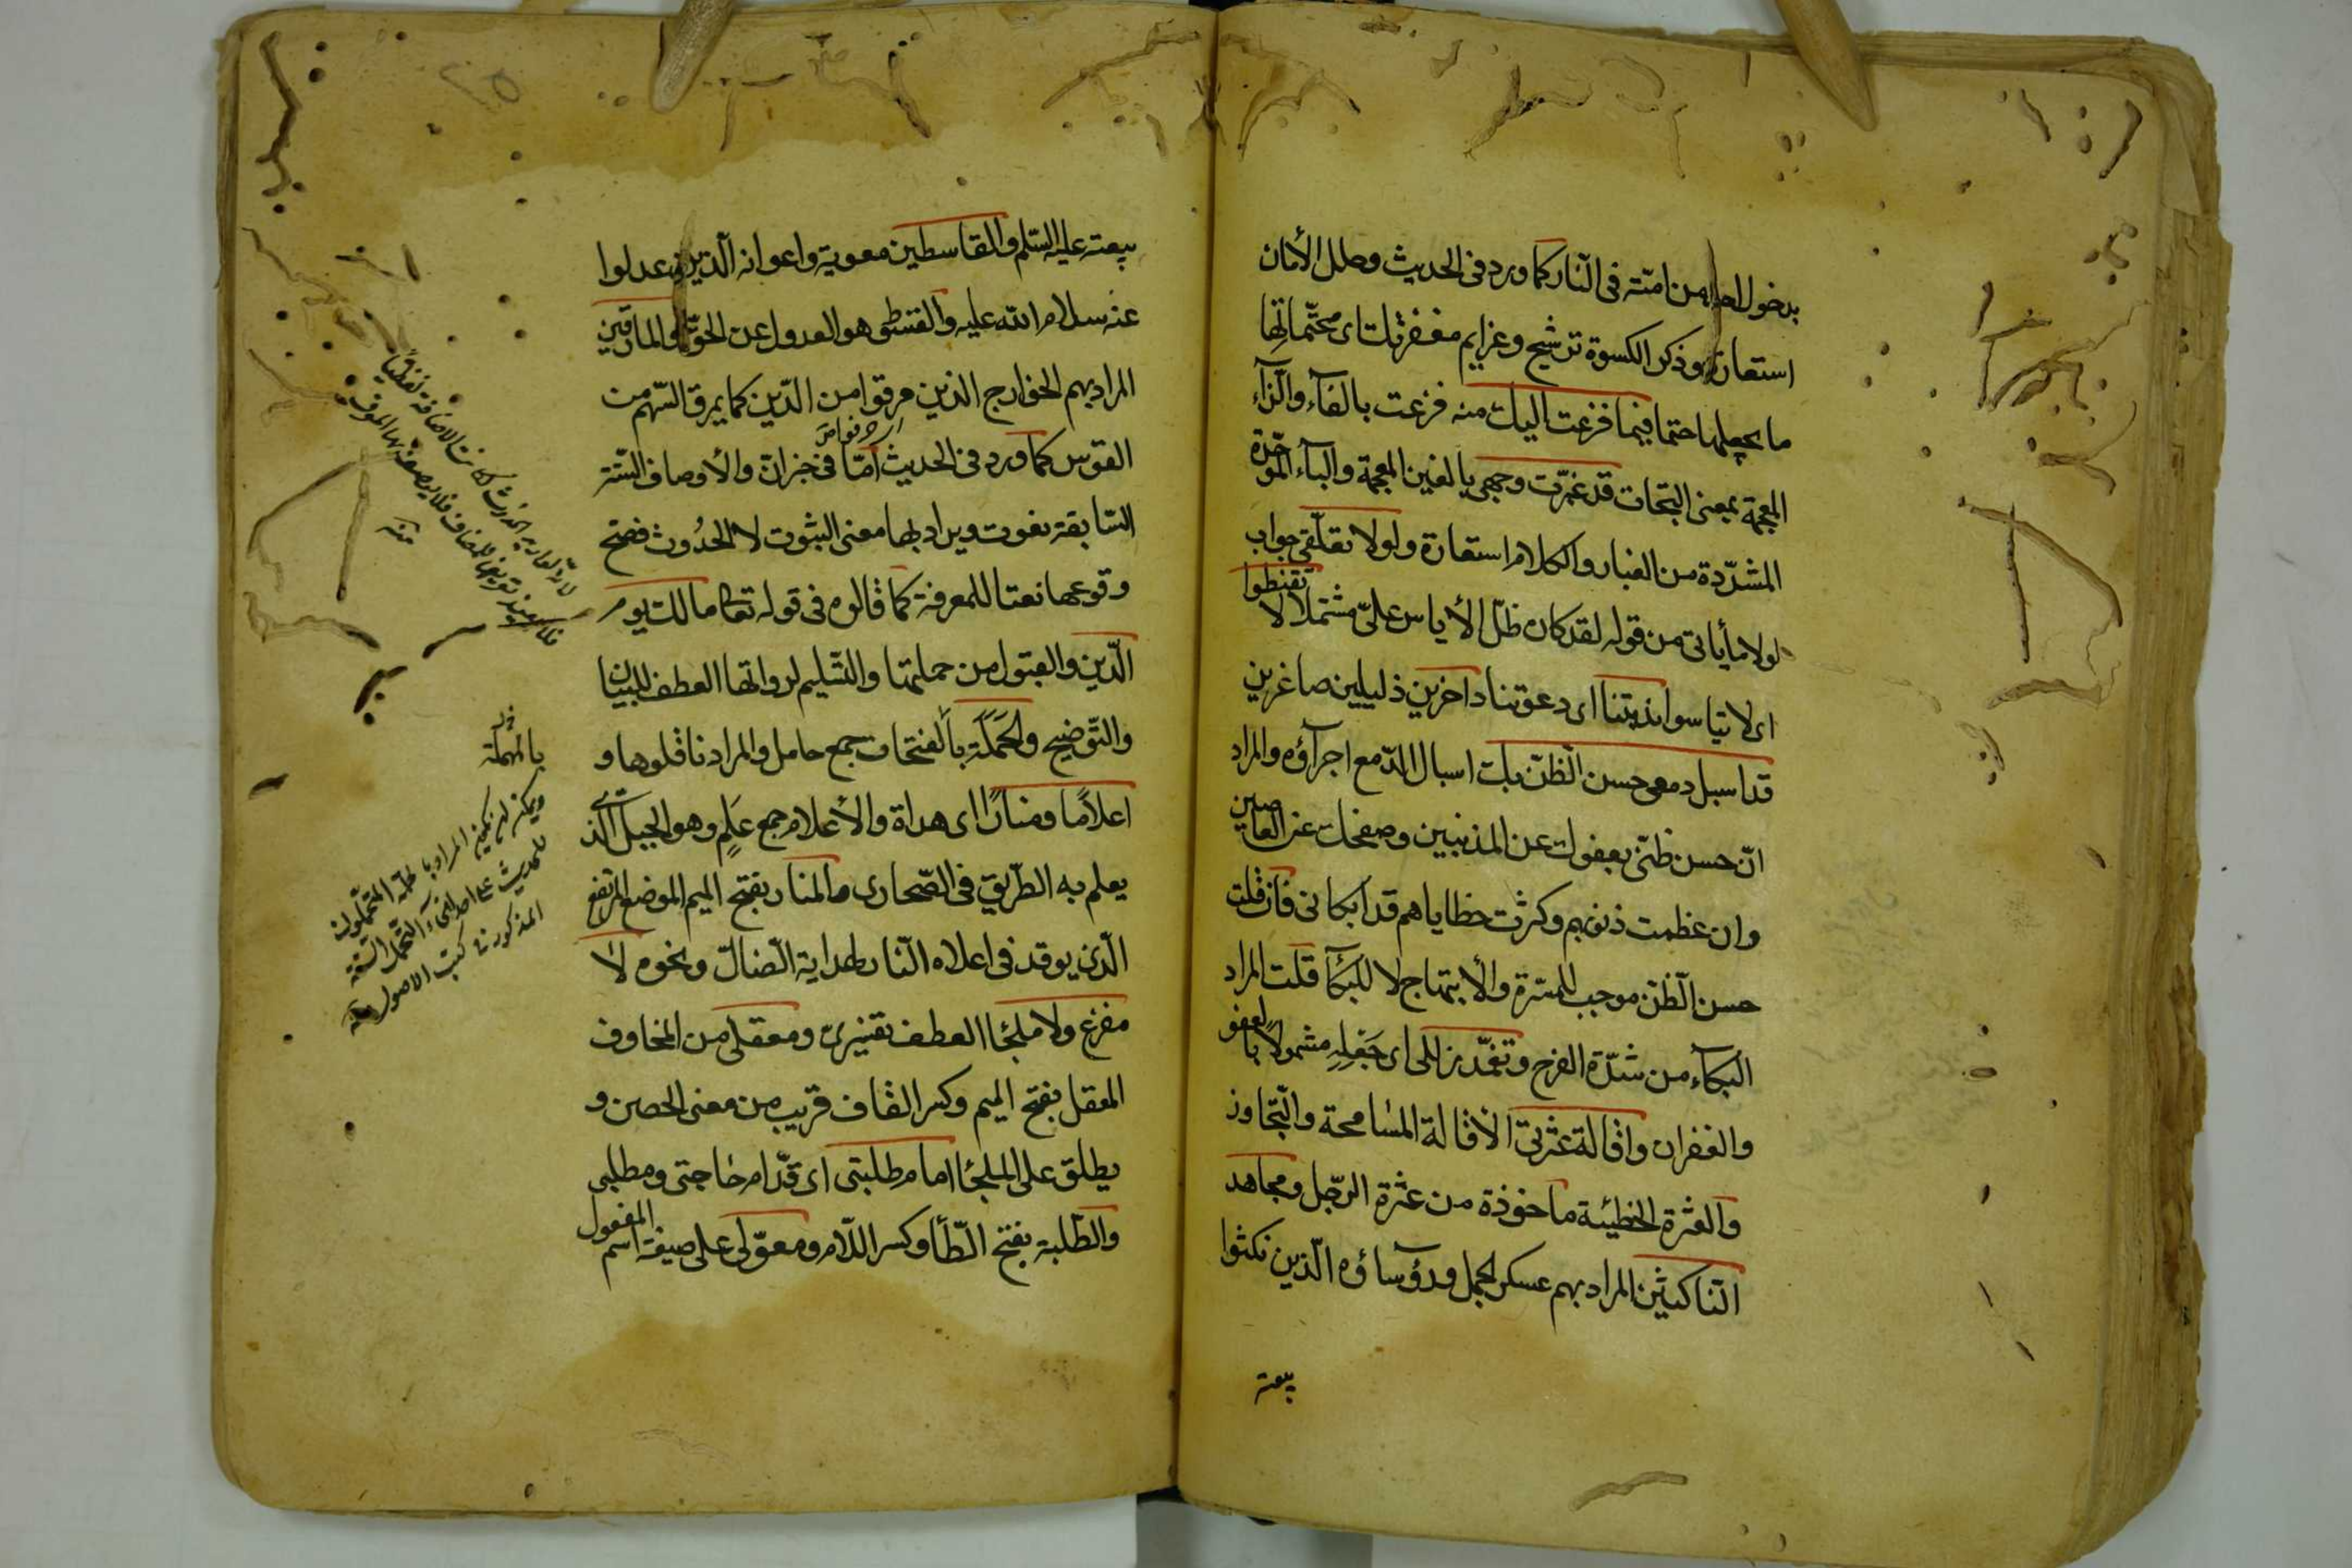 بدخول احد من امته فى النار كما ورد فى الحديث وحلل الأمان
استعارة وذكر الكسوة ترشيح وعزايم مغفرتك اى محتماتها
ما يجعلها حتما فيما فزعت اليك منه فزعت بالفآء والزآء
المعجمة بمعنى التجات قد غبرت وجهى بالغين المعجمة والبآء الموحدة
المشددة من الغبار والكلام استعارة ولولا تعلقى جواب
لولا ما يأتى من قوله لقد كان ظل الأياس على مشتملا لا تقنطوا
اى لا تيأسوا ندبتنا اى دعوتنا داخرين ذليلين صاغرين
قد اسبل دمعى حسن الظن بك اسبال الدمع اجرآؤه والمراد
ان حسن ظنى بعفوك عن المذنبين وصفحك عن العاصين
وان عظمت ذنوبهم وكثرت خطاياهم قد ابكانى فان قلت
حسن الظن موجب للمسرة والأبتهاج لا للبكآ قلت المراد
البكآء من شدة الفرح وتغمد زللى اى جعله مشمولا بالعفو
والغفران واقالة عثرتى الاقالة المسامحة والتجاوز
والعثرة الخطيئة ماخوذة من عثرة الرجل ومجاهد
الناكثين المراد بهم عسكر الجمل ورؤسآؤه الذين نكثوا
بيعته
بيعته عليه السلم والقاسطين معوية واعوانه الذين عدلوا
عنه سلام الله عليه والقسط هو العدول عن الحق والمارقين
المراد بهم الخوارج الذين مرقوا من الدين كما يمرق السهم من
القوس كما ورد فى الحديث امتا فى خبر ان والأوصاف الستة
السابقة نعوت ويراد بها معنى الثبوت لا الحدوث فصح
وقوعها نعتا للمعرفة كما قالوه فى قوله تعا مالك يوم
الدين والقبول من حملتها والتسليم لرواتها العطف للبيان
والتوضيح والحملة بالفتحات جمع حامل والمراد ناقلوها و
اعلاما ومنارا اى هداة والأعلام جمع علم وهو الجبل الذى
يعلم به الطريق فى الصحارى والمنار بفتح الميم الموضع المرتفع
الذى يوقد فى اعلاه النار لهداية الضال ونحوه لا
مفزع ولا ملجئا العطف تفسيرى ومعقلى من المخاوف
المعقل بفتح الميم وكسر القاف قريب من معنى الحصن و
يطلق على الملجئا امام طلبتى اى قدام حاجتى ومطلبى
والطلبة بفتح الطأ وكسر اللام ومعولى على صيغة اسم المفعول
بالمهملة
ويمكن ان يكون المراد بالحملة المتحملون
للحديث على احد انحآء التحمل الستة
المذكورة فى كتب الاصول منه